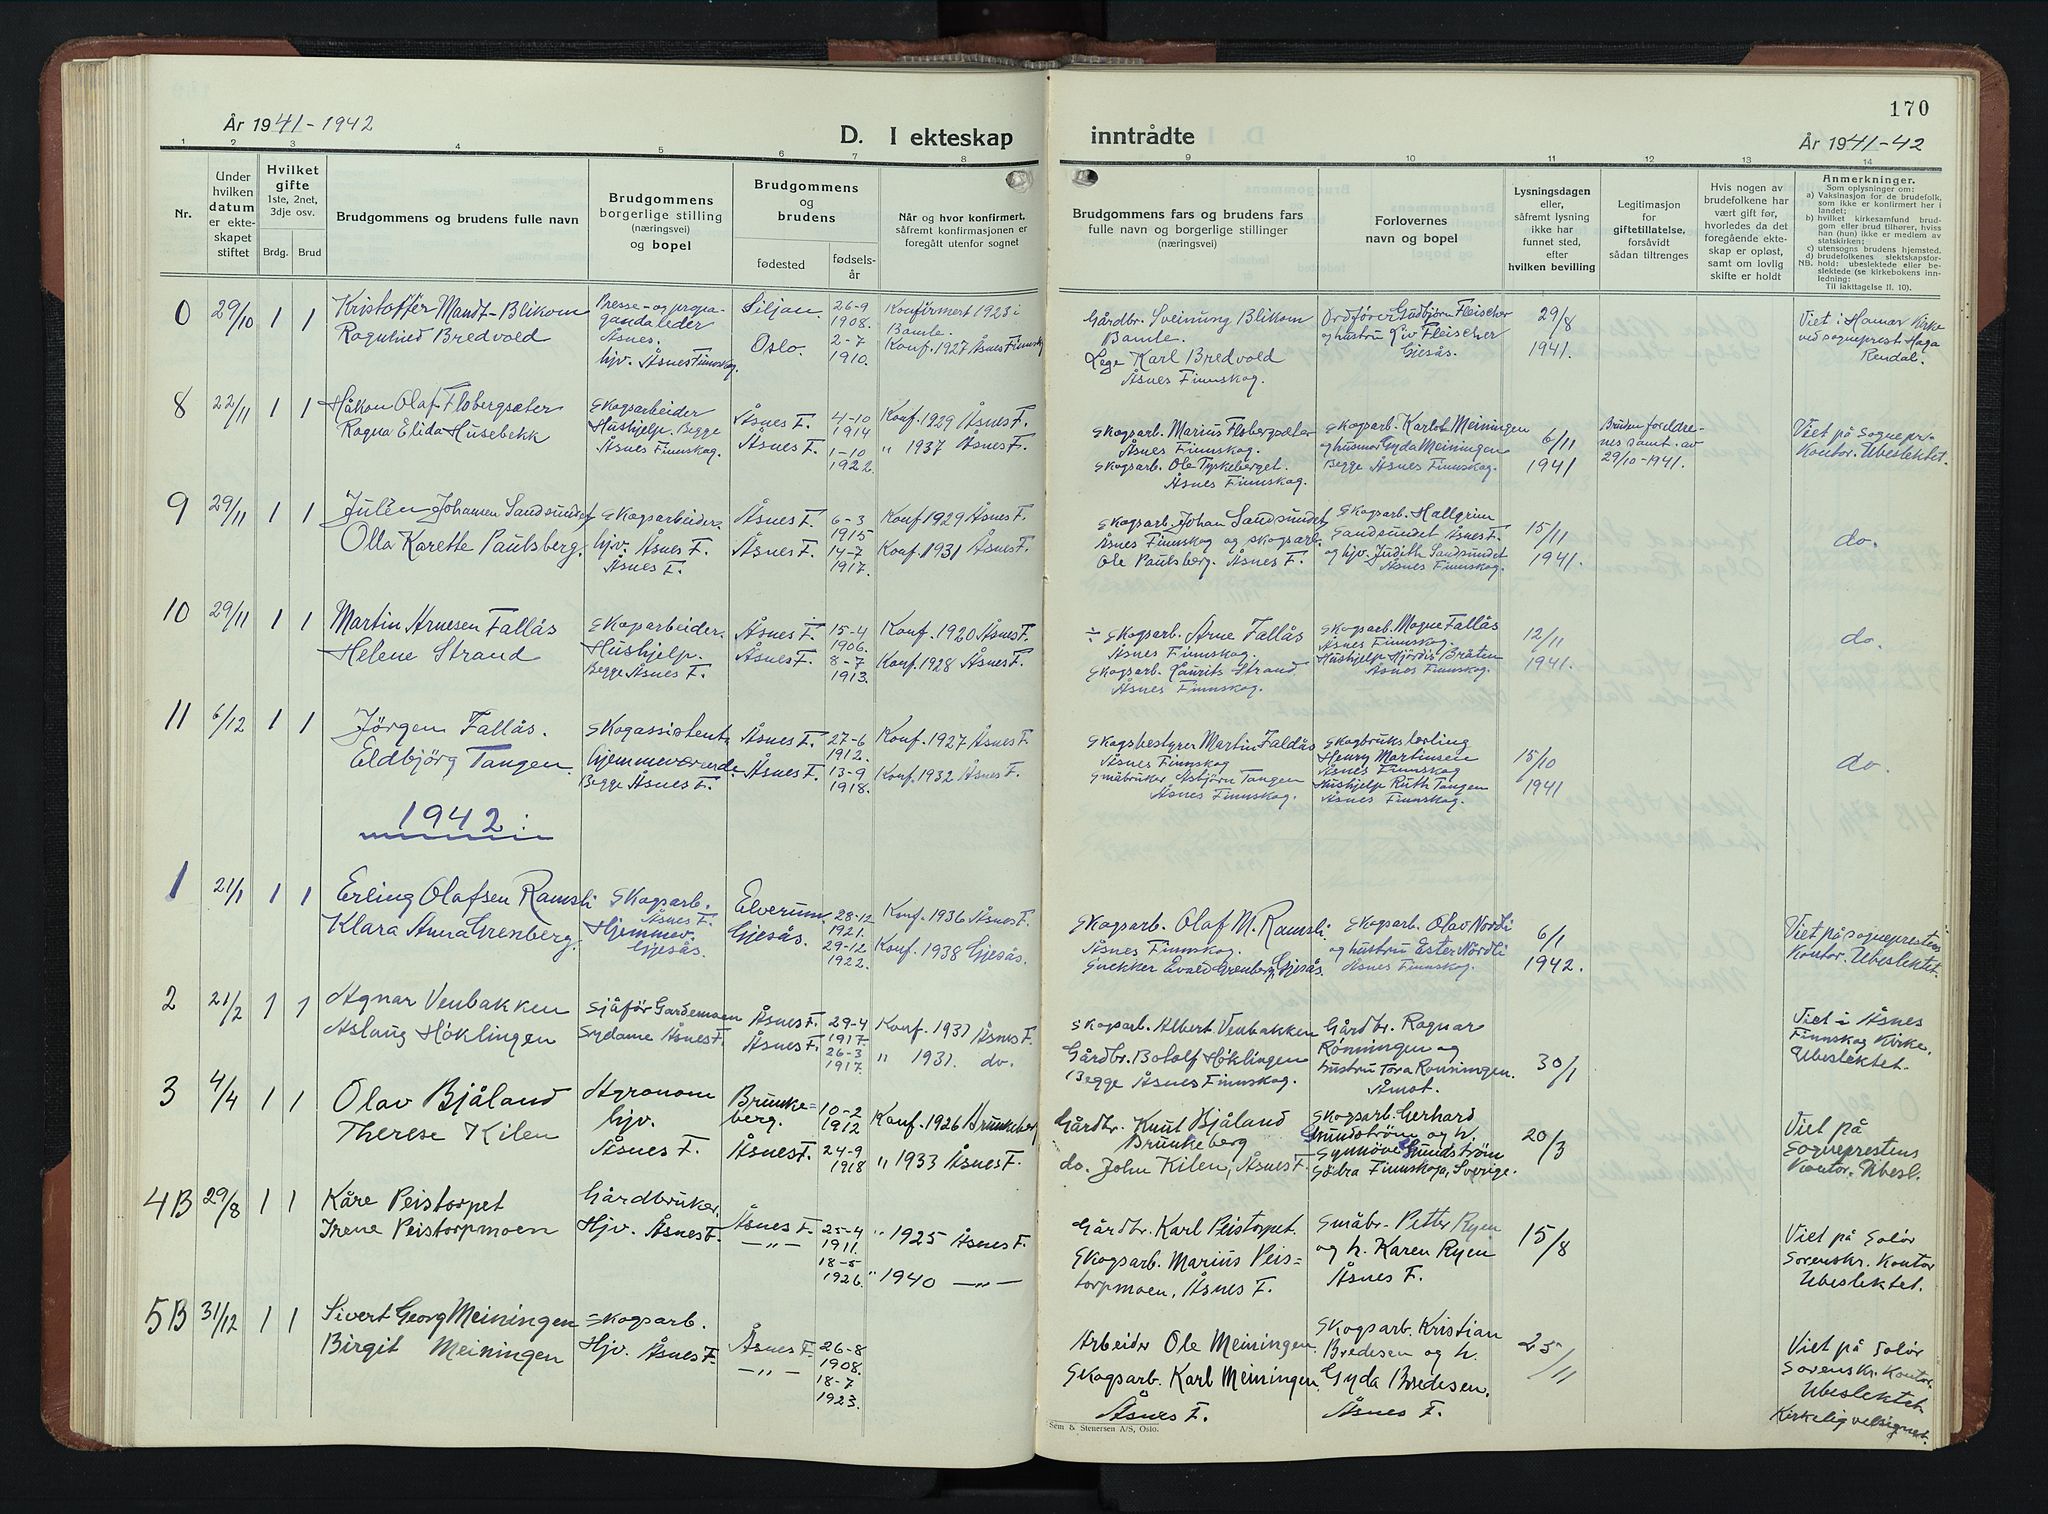 170
År 1941-1942
D. I ekteskap
inntrådte
År 1941-42
1 2 3 4 5 6 7 8
9 10 11 12 13 14
Nr.
Under
hvilken
datum
er ekte-
skapet
stiftet
Hvilket
gifte
1ste, 2net,
3dje osv.
Brdg. Brud
Brudgommens og brudens fulle navn
Brudgommens
borgerlige stilling
(næringsvei)
og bopel
Brudgommens
og
brudens
fødested
fødsels-
år
Når og hvor konfirmert,
såfremt konfirmasjonen er
foregått utenfor sognet
Brudgommens fars og brudens fars
fulle navn og borgerlige stillinger
(næringsvei)
Forlovernes
navn og bopel
Lysningsdagen
eller,
såfremt lysning
ikke har
funnet sted,
efter
hvilken bevilling
Legitimasjon
for
giftetillatelse,
forsåvidt
sådan tiltrenges
Hvis nogen av
brudefolkene har
vært gift før,
hvorledes da det
foregående ekte-
skap er opløst,
samt om lovlig
skifte er holdt
Anmerkninger.
Som oplysninger om:
a) Vaksinasjon for de brudefolk,
som ikke er konfirmert her i
landet;
b) hvilket kirkesamfund brud-
gom eller brud tilhører, hviss
han (hun) ikke er medlem av
statskirken;
c) utensogns brudens hjemsted.
d) brudefolkenes slektskapsfor-
NB. hold: ubeslektede eller be-
slektede (se kirkebokens inn-
ledning:
Til iakttagelse II. 10).
0 29/10 1 1
Kristoffer Mandt-Blikom
Ragnhild Bredvold
Presse- og propa-
gandaleder
Åsnes.
hjv. Åsnes Finnskog.
Siljan.
Oslo.
26-9
1908.
2-7
1910.
Konfirmert 1923 i
Bamle.
Konf. 1927 Åsnes Finnsk.
Gårdbr. Sveinung Blikom
Bamle.
Lege Karl Bredvold
Åsnes Finnskog.
Ordfører Gudbjørn Fleischer
og hustru Liv Fleischer
Gjesås.
29/8
1941.
Viet i Hamar Kirke
ved sogneprest Haga
Rendal.
8 22/11 1 1
Håkon Olaf Flobergsæter
Ragna Elida Husebekk
Skogsarbeider
Hushjelp. Begge
Åsnes Finnskog.
Åsnes F.
Åsnes F.
4-10
1914
1-10
1922.
Konf. 1929 Åsnes F.
" 1937 Åsnes F.
Skogsarb. Marius Flobergsæter
Åsnes Finnskog.
Skogsarb. Ole Tyskeberget.
Åsnes Finnskog.
Skogsarb. Karlot Meiningen
og hustru Gyda Meiningen
Begge Åsnes Finnskog.
6/11
1941
Brudens foreldre-
nes samt. av
29/10-1941.
Viet på Sognepr.-
Kontor. Ubeslektet.
9 29/11 1 1
Julén Johansen Sandsundet
Olla Karette Paulsberg.
Skogsarbeider.
hjv. Åsnes F.
Åsnes F.
Åsnes F.
Åsnes F.
6-3
1915
14-7
1917.
Konf 1929 Åsnes F.
Konf. 1931 Åsnes F.
Skogsarb. Johan Sandsundet
Åsnes Finnskog og skogsarb.
Ole Paulsberg. Åsnes F.
Skogsarb. Hallgrim
Sandsundet Åsnes F.
og hjv. Judith Sandsundet
Åsnes Finnskog.
15/11
1941.
do.
10 29/11 1 1
Martin Arnesen Fallås
Helene Strand
Skogarbeider.
Hushjelp.
Begge Åsnes F.
Åsnes F.
Åsnes F.
15-4
1906.
8-7
1913.
Konf. 1920 Åsnes F.
Konf. 1928 Åsnes F.
÷ Skogsarb. Arne Fallås
Åsnes Finnskog.
Skogsarb. Laurits Strand
Åsnes Finnskog.
Skogsarb. Magne Fallås
Åsnes Finnskog.
Hushjelp Hjördis Bråten
Åsnes Finnskog.
12/11
1941.
do.
11 6/12 1 1
Jörgen Fallås.
Eldbjörg Tangen.
Skogassistent
hjemmeværende.
Begge Åsnes F.
Åsnes F.
Åsnes F.
27-6
1912.
13-9
1918.
Konf. 1927 Åsnes F.
Konf. 1932 Åsnes F.
Skogsbestyrer Martin Faldås
Åsnes Finnskog
Småbruker Asbjörn Tangen
Åsnes Finnskog.
Skogbrukslærling
Henry Martinsen
Åsnes Finnskog
Hushjelp Ruth Tangen
Åsnes Finnskog.
15/10
1941
do.
1942:
1 21/1 1 1
Erling Olafsen Ramsli
Klara Anna Grenberg.
Skogsarb.
Åsnes F.
Hjemmev.
Gjesås.
Elverum.
Gjesås.
28-12
1921.
29-12
1922.
Konf. 1936 Åsnes F.
Konf. 1938 Gjesås.
Skogsarb. Olaf M. Ramsli.
Åsnes Finnskog.
Snekker Evald Grenberg, Gjesås.
Skogsarb. Olav Nordli
og hustru Ester Nordli
Åsnes Finnskog.
6/1
1942.
Viet på sogneprestens
Kontor. Ubeslektet.
2 21/2 1 1
Agnar Venbakken
Aslaug Höklingen
Sjåför Gardemoen
Sydame Åsnes F.
Åsnes F.
Åsnes F.
29-4
1917.
26-3
1917.
Konf. 1931 Åsnes F.
" 1931. do.
Skogsarb. Albert Venbakken
Gårdbr. Botolf Höklingen
Begge Åsnes Finnskog.
Gårdbr. Ragnar
Rönningen og
hustru Tora Rönningen.
Åmot.
30/1
Viet i Åsnes
Finnskog Kirke.
Ubeslektet.
3 4/4 1 1
Olav Bjåland
Therese Kilen
Agronom
hjv.
Åsnes F.
Brunke=
berg.
Åsnes F.
10-2
1912
24-9
1918
Konf. 1926 Brunkeberg
" 1933 Åsnes F.
Gårdbr. Knut Bjåland
Brunkeberg
do. John Kilen, Åsnes F.
Skogsarb. Gerhard
Sundström og h.
Synnöve Sundström
Södra Finnskoga, Sverige.
20/3
Viet på
Sogneprestens
Kontor. Ubesl.
4B 29/8 1 1
Kåre Peistorpet
Irene Peistorpmoen
Gårdbruker.
Hjv. Åsnes F.
Åsnes F.
—"—
25-4
1911.
18-5
1926.
" 1925 Åsnes F.
" 1940 —"—
Gårdbr. Karl Peistorpet.
Skogsarb. Marius Peis-
torpmoen, Åsnes F.
Småbr. Petter Ryen
og h. Karen Ryen
Åsnes F.
15/8
Viet på Solör
Sorenskr. Kontor
Ubeslektet.
5B 31/12 1 1
Sivert Georg Meiningen
Birgit Meiningen
Skogsarb.
Hjv. Åsnes F.
Åsnes F.
—"—
26-8
1908.
18-7
1923.
Arbeider Ole Meiningen.
Skogsarb. Karl Meiningen.
Åsnes F.
Skogsarb. Kristian
Bredesen og h.
Gyda Bredesen.
Åsnes F.
25/11
Viet på Solör
Sorenskr. Kontor.
Ubeslektet
Kirkelig velsignet.
Sem & Stenersen A/S, Oslo.